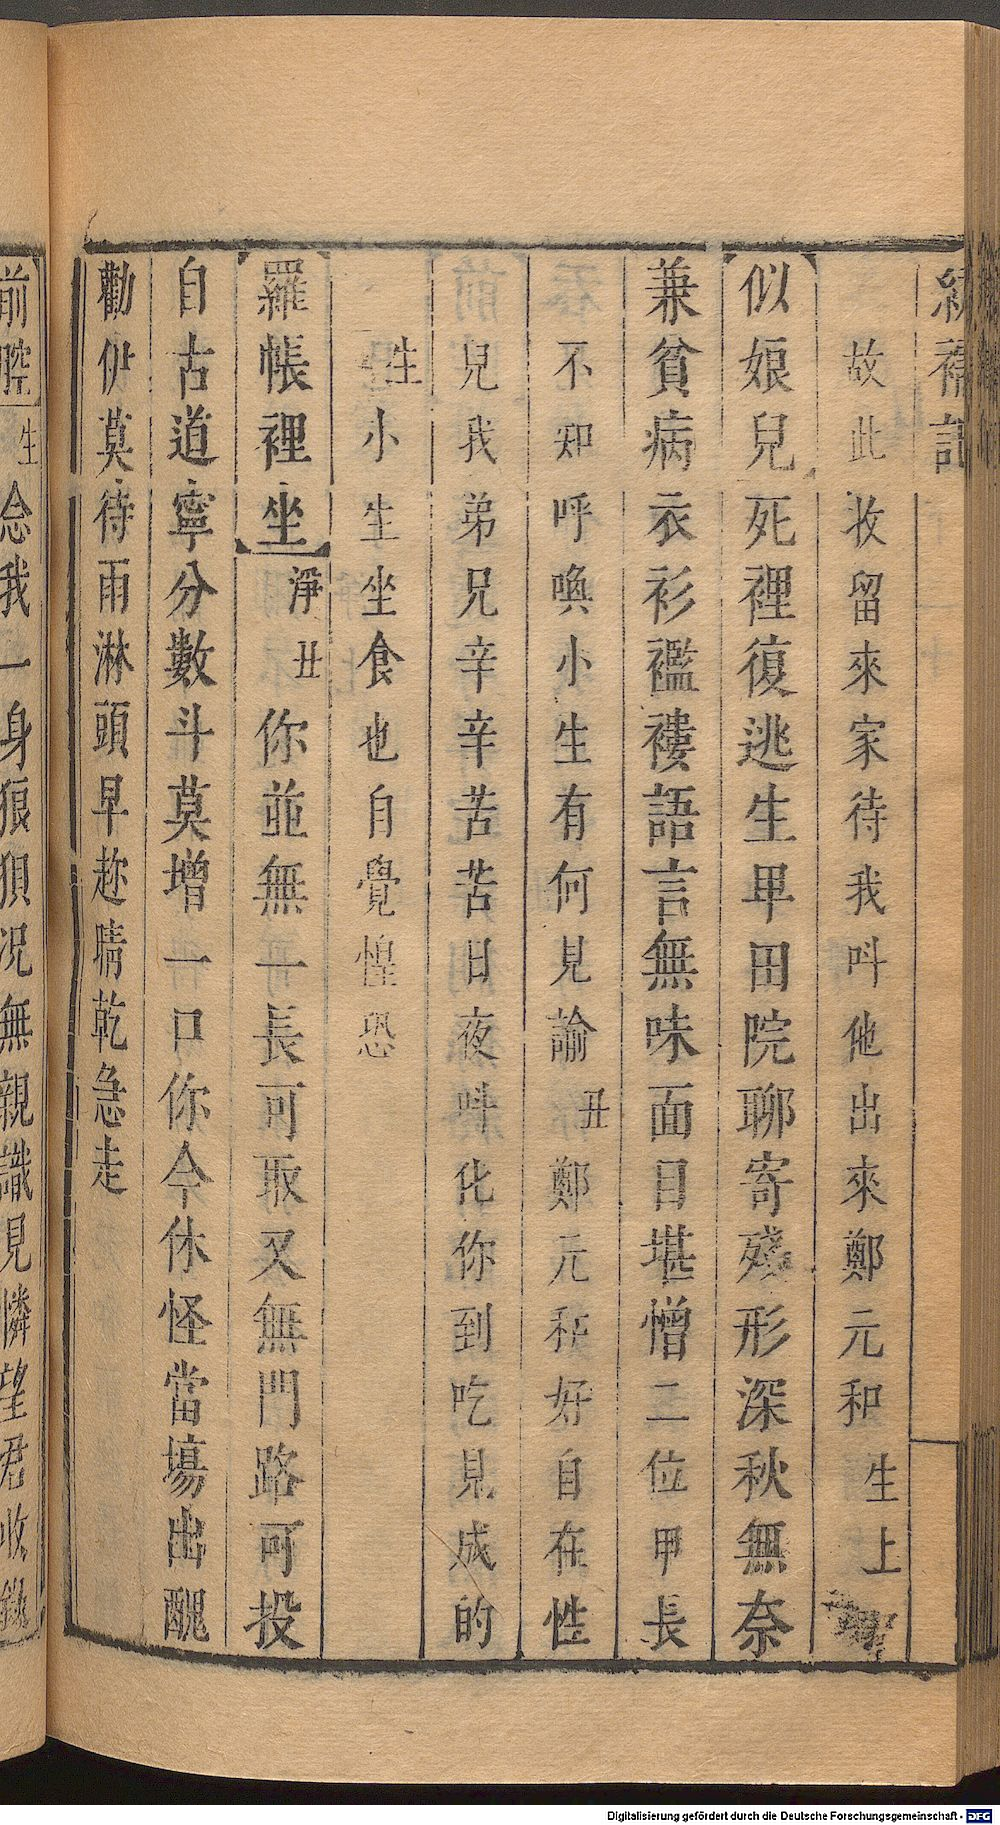 繡襦記
故此收留來家待我呌他出來鄭元和生上
似娘兒死裡復逃生畢田院聊寄殘形深秋無奈
兼貧病衣衫襤褸語言無味面目堪憎二位甲長
不知呼喚小生有何見諭丑鄭元和好自在性
兒我弟兄辛辛苦苦日夜呌化你到吃見成的
生小生坐食也自覺惶恐
羅帳裡坐淨丑你並無一長可取又無門路可投
自古道寧分數斗莫增一口你今休怪當場出醜
勸伊莫待雨淋頭早趂晴乾急走
前腔生念我一身狼狽况無親識見憐望君收錄
Digitalisierung gefördert durch die Deutsche Forschungsgemeinschaft - DFG